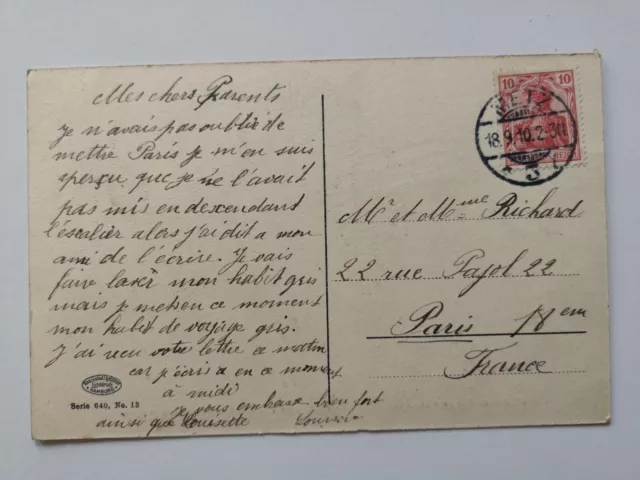 Mes chers Parents
je n'avais pas oublié de
mettre Paris je m'en suis
aperçu que je ne l'avait
pas mis en descendant
l'escalier alors j'ai dit a mon
ami de l'écrire. Je vais
faire laver mon habit gris
mais je mets en ce moment
mon habit de voyage gris.
J'ai reçu votre lettre ce matin
car j'écris a en ce moment
à midi
je vous embrasse bien fort
ainsi que
Serie 640, No. 13
10 10
18.9.10.2-3N
Mr et Mme Richard
22 rue Pajol 22
Paris 18em
France